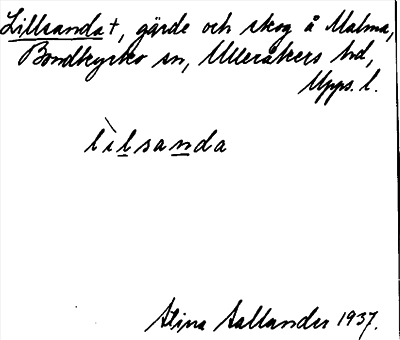 Lillsanda+, gärde och skog å Malma,
Bondkyrko sn, Ulleråkers hd,
Upps. l.
lìlsanda
Stina Sallander 1937.